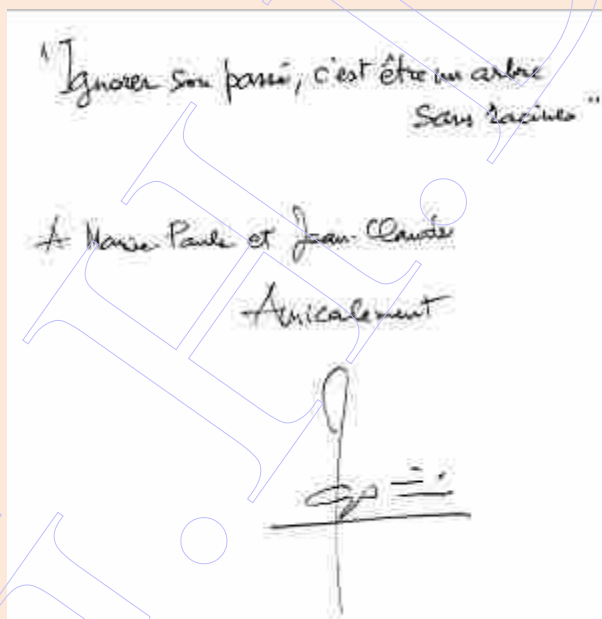 "Ignorer son passé, c'est être un arbre
sans racines"
A Marie Paule et Jean-Claude
Amicalement